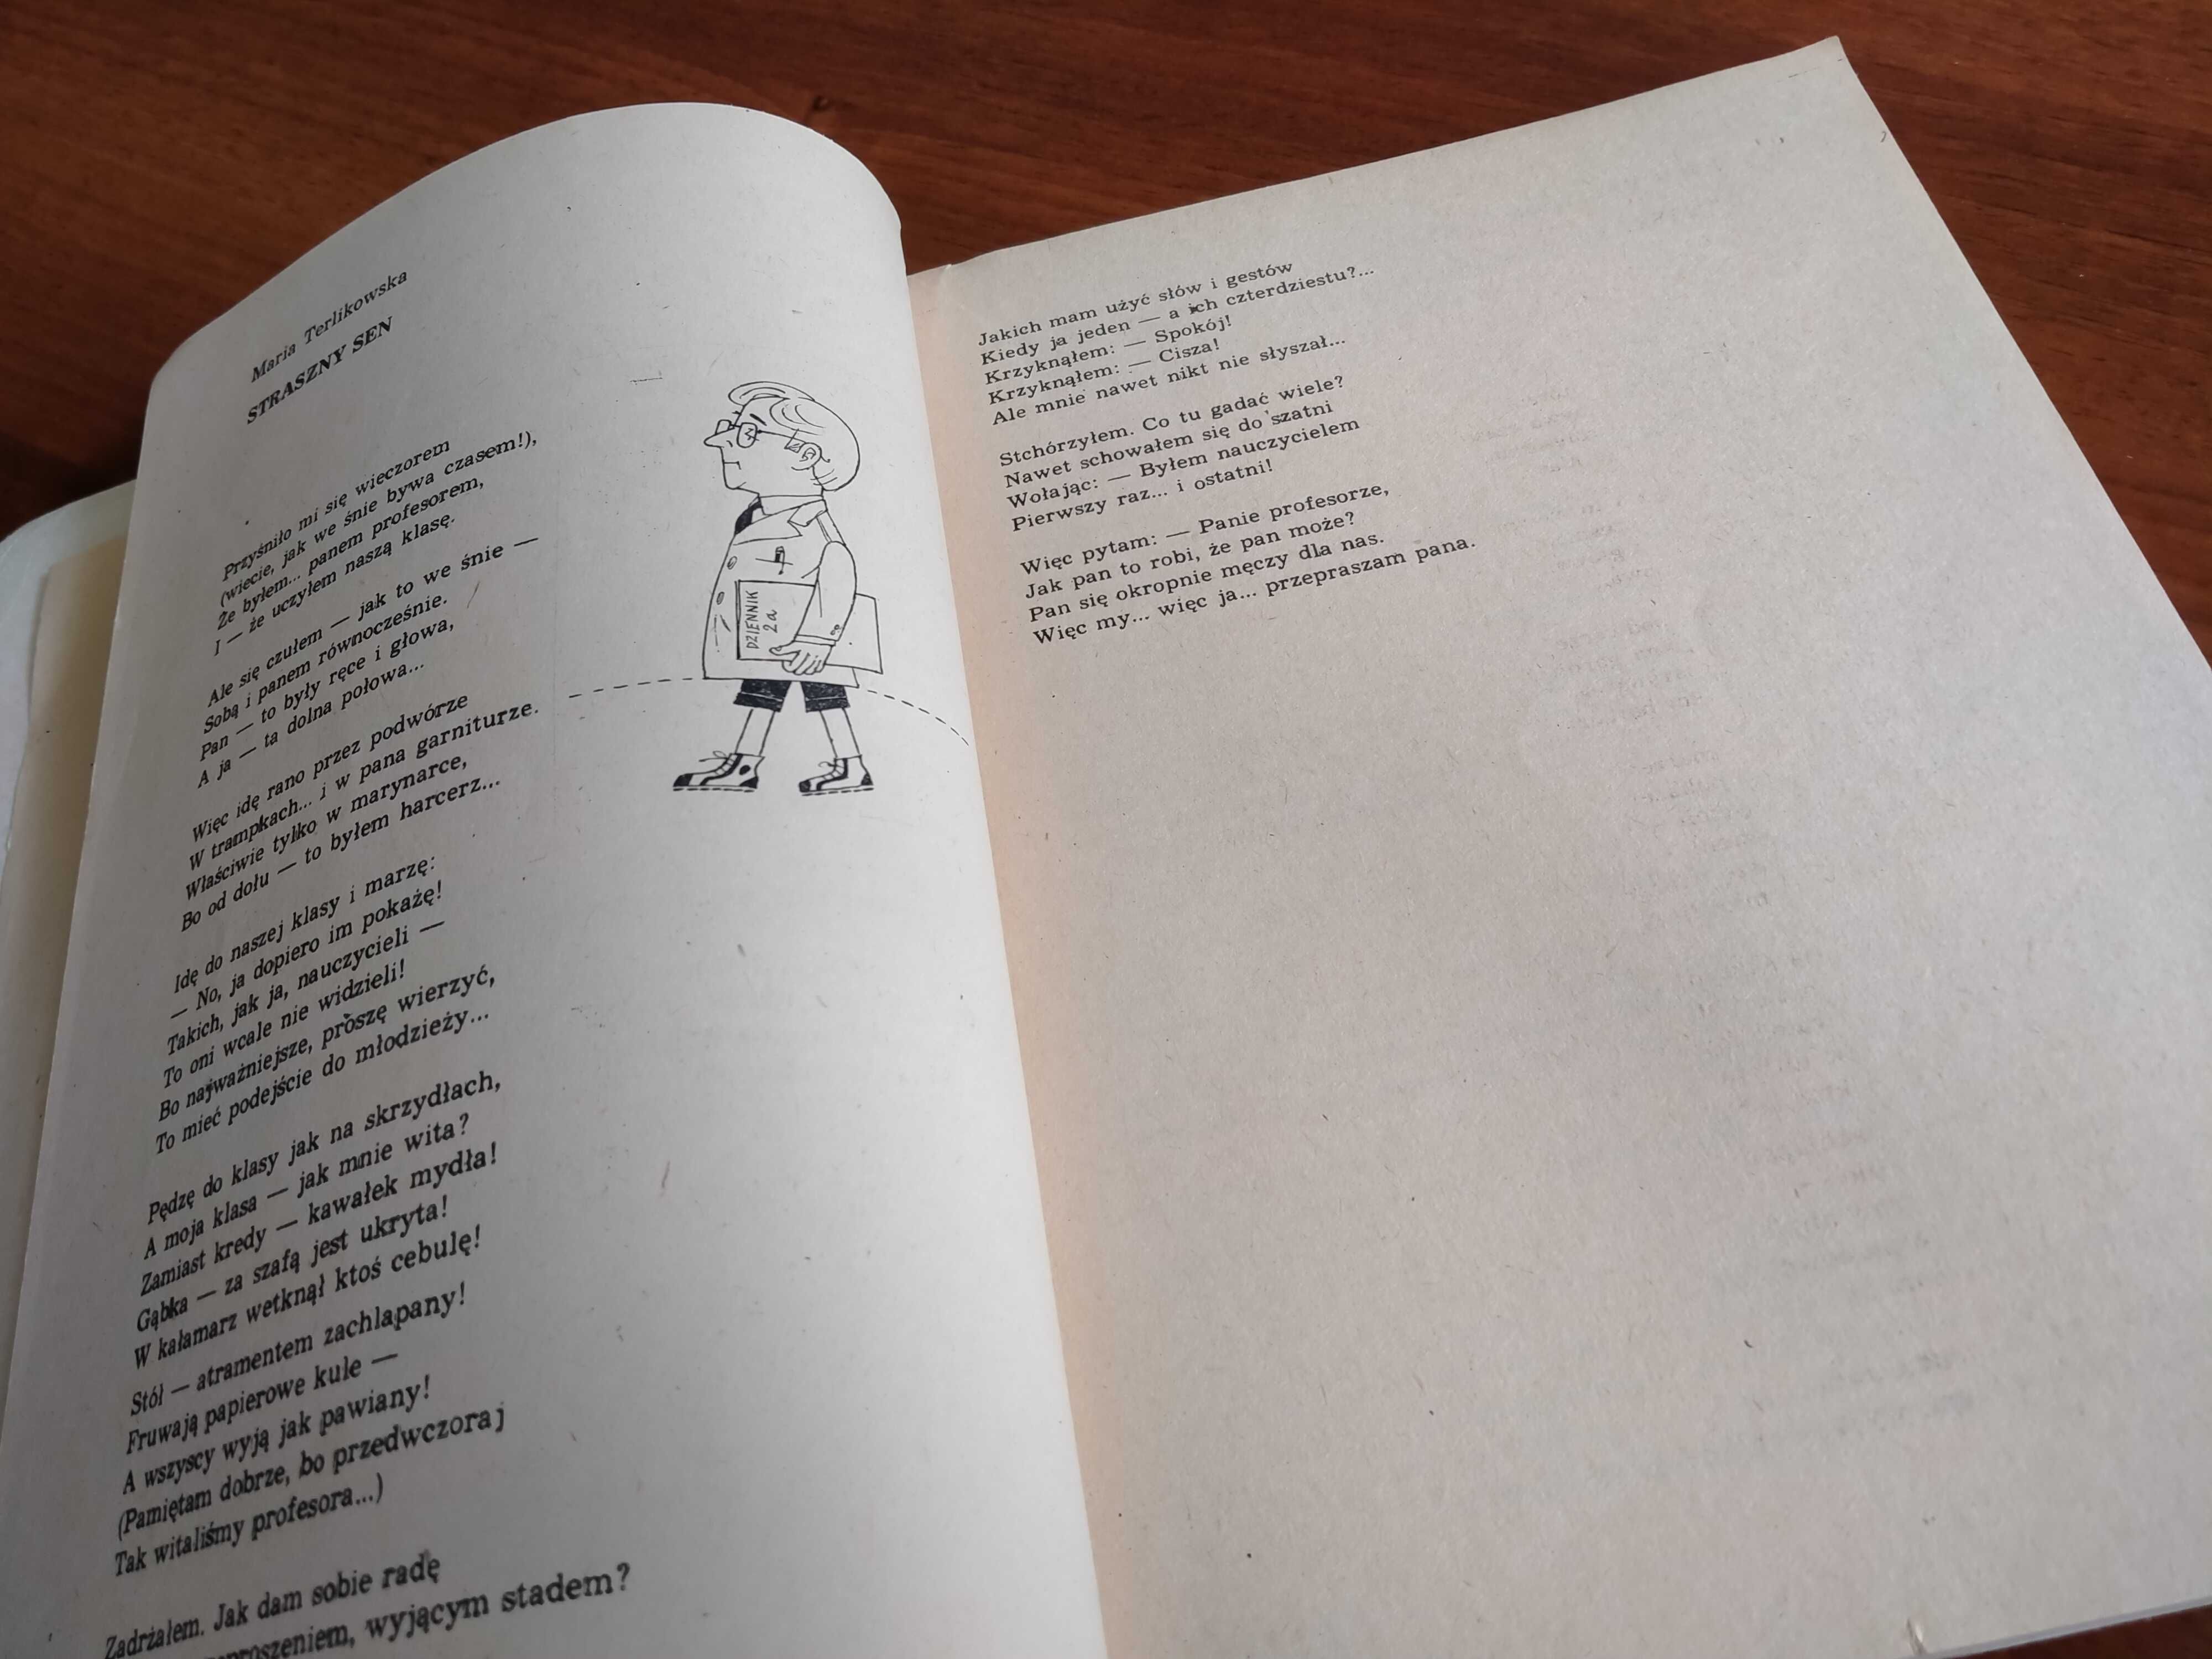 Maria Terlikowska
STRASZNY SEN
Przyśniło mi się wieczorem
(wiecie, jak we śnie bywa czasem!),
Że byłem... panem profesorem,
I — że uczyłem naszą klasę.
Ale się czułem — jak to we śnie —
Sobą i panem równocześnie.
Pan — to były ręce i głowa,
A ja — ta dolna połowa...
Więc idę rano przez podwórze
W trampkach... i w pana garniturze.
Właściwie tylko w marynarce,
Bo od dołu — to byłem harcerz...
Idę do naszej klasy i marzę:
— No, ja dopiero im pokażę!
Takich, jak ja, nauczycieli —
To oni wcale nie widzieli!
Bo najważniejsze, proszę wierzyć,
To mieć podejście do młodzieży...
Pędzę do klasy jak na skrzydłach,
A moja klasa — jak mnie wita?
Zamiast kredy — kawałek mydła!
Gąbka — za szafą jest ukryta!
W kałamarz wetknął ktoś cebulę!
Stół — atramentem zachlapany!
Fruwają papierowe kule —
A wszyscy wyją jak pawiany!
(Pamiętam dobrze, bo przedwczoraj
Tak witaliśmy profesora...)
Zadrżałem. Jak dam sobie radę
wyjącym stadem?
DZIENNIK
2a
Jakich mam użyć słów i gestów
Kiedy ja jeden — a ich czterdziestu?...
Krzyknąłem: — Spokój!
Krzyknąłem: — Cisza!
Ale mnie nawet nikt nie słyszał...
Stchórzyłem. Co tu gadać wiele?
Nawet schowałem się do szatni
Wołając: — Byłem nauczycielem
Pierwszy raz... i ostatni!
Więc pytam: — Panie profesorze,
Jak pan to robi, że pan może?
Pan się okropnie męczy dla nas.
Więc my... więc ja... przepraszam pana.